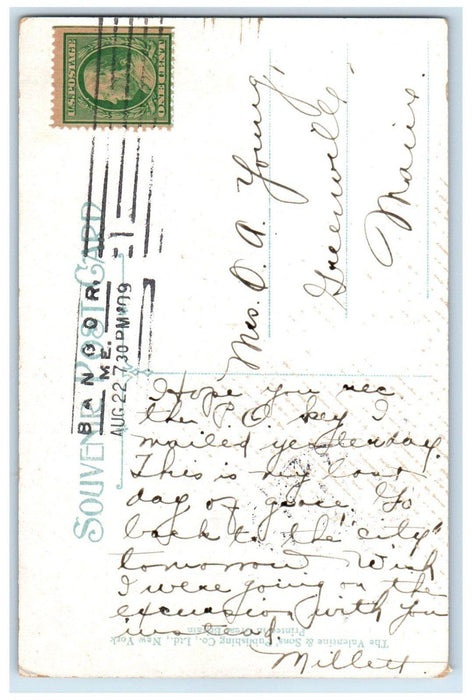 U.S. POSTAGE
ONE CENT
BANGOR,
ME.
AUG 22 730 PM 1909
1
SOUVENIR POST CARD
Mrs. O. A. Young,
Greenville,
Maine.
Hope you rec
the P.O. key I
mailed yesterday.
This is my last
day of grace. Go
back to the "city"
tomorrow. Wish
I were going on the
excursion with you
Millett.
The Valentine & Sons' Publishing Co., Ltd., New York
Printed in Great Britain